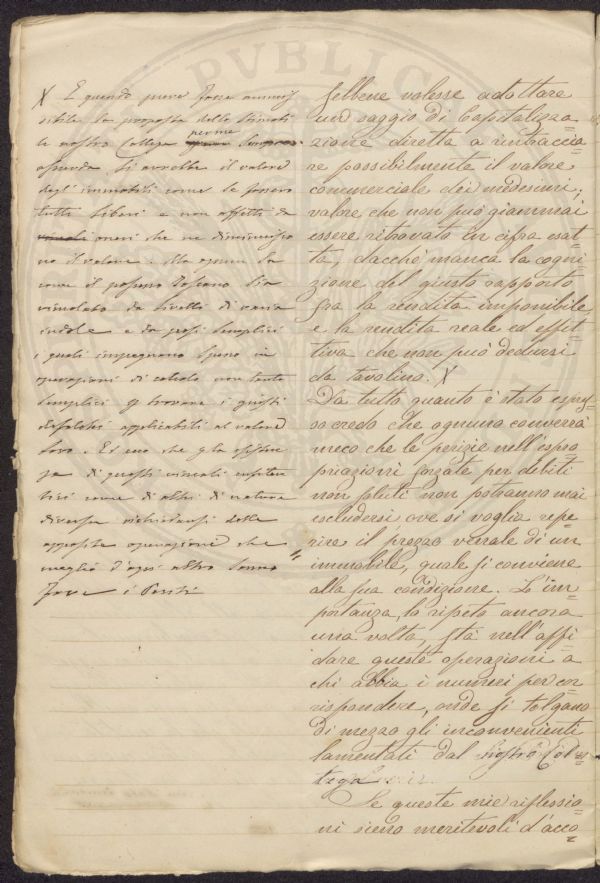 PVBLIC
X E quando pure fosse ammis
sibile la proposta della stima
le nostro Collega per me
si avrebbe il valore
degl'immobili come se fossero
tutti liberi e non affetti da
oneri che ne diminuisco
no il valore. Ma ognun sa
come il possesso Toscano sia
vincolato da livelli di varia
indole e da pesi semplici
i quali impegnano spesso in
operazioni di calcolo non tanto
semplici p trovare i giusti
defalchi applicabili al valore
loro. Ed ecco che p la esisten
za di questi vincoli
come di altri di natura
diversa delle
apposite operazioni che
meglio d'ogni altro sanno
fare i Periti
sebbene volesse adottare
un saggio di Capitalizza
zione diretta a rintraccia=
re possibilmente il valore
commerciale dei medesimi;
valore che non può giammai
essere ritrovato in cifra esat=
ta, dacchè manca la cogni
zione del giusto rapporto
fra la rendita imponibile,
e la rendita reale ed effet=
tiva che non può dedursi
da tavolino. X
Da tutto quanto è stato espres
so credo che ognuno converrà
meco che le perizie nell'espro
priazioni forzate per debiti
non soluti non potranno mai
escludersi, ove si voglia repe=
rire il prezzo venale di un
immobile, quale si conviene
alla sua condizione. L'im=
portanza, lo ripeto ancora
una volta, sta nell'affi
dare queste operazioni a
chi abbia i numeri per cor
rispondere, onde si tolgano
di mezzo gli inconvenienti
lamentati dal nostro Col=
lega
Se queste mie riflessio=
ni sieno meritevoli d'acco=